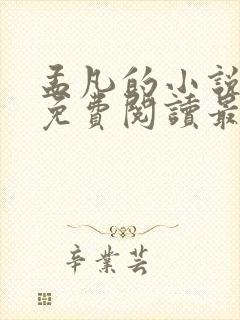 孟凡的小說
免費閱讀最
辛業芸